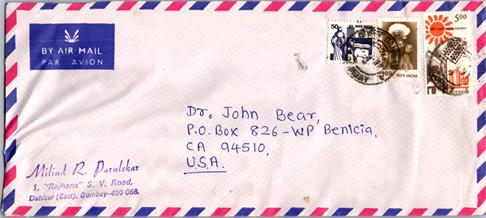 BY AIR MAIL
PAR AVION
50
5.00
INDIA
Dr. John Bear,
P.O. Box 826-WP Benicia,
CA 94510,
U.S.A.
Milind R. Parulekar
1, "Rajhans" S. V. Road,
Dahisar (East), Bombay-400 068.